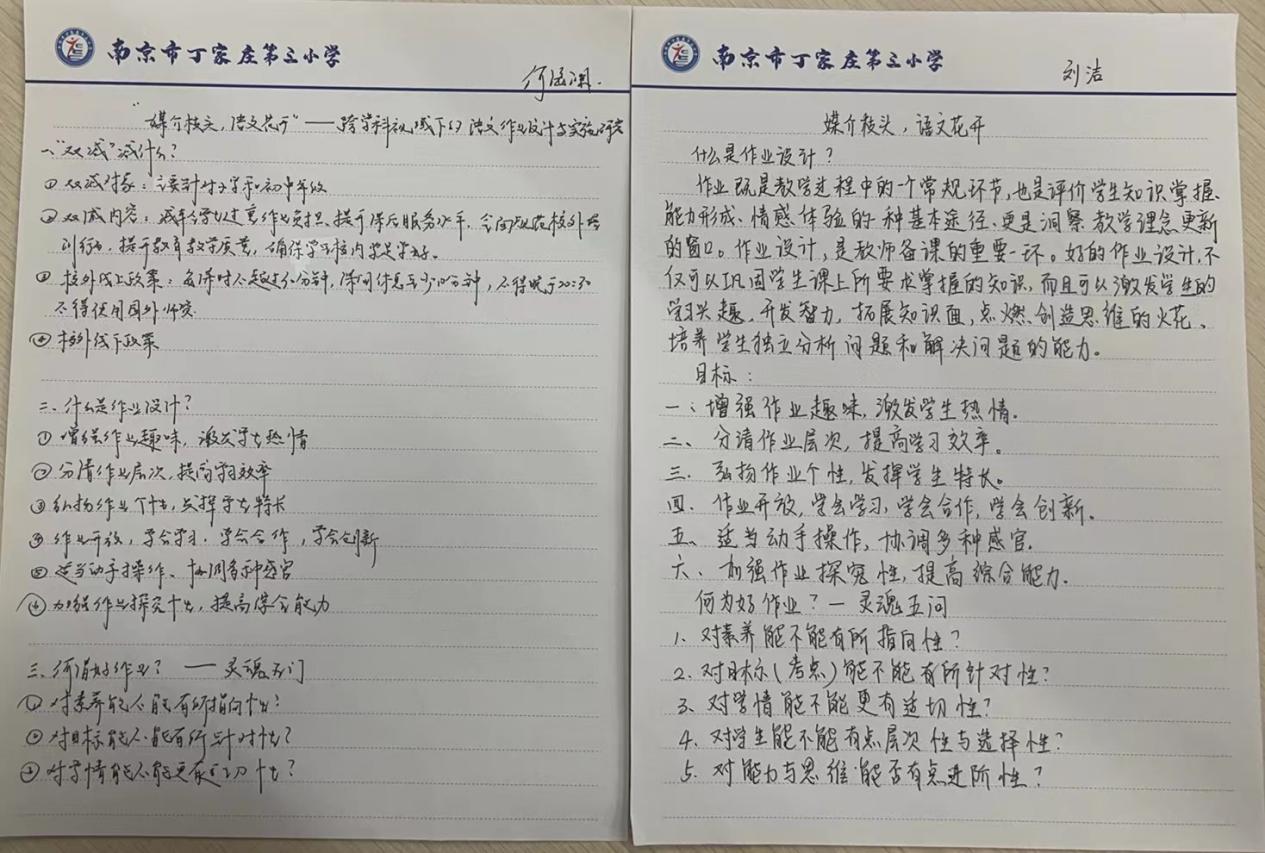 南京市丁家庄第三小学
何涵渊.
"媒介枝头,语文花开"——跨学科视域下的语文作业设计与实施研究
一、"双减"减什么?
① 双减对象:主要针对小学和初中年级
② 双减内容:减轻学生过重作业负担、提升课后服务水平,全面规范校外培
训行为,提升教育教学质量,确保学习校内学足学好。
③ 校外线上政策:每课时不超过30分钟,课间休息至少10分钟,不得晚于20:30
不得使用国外师资
④ 校外线下政策
二、什么是作业设计?
① 增强作业趣味,激发学生热情
② 分清作业层次,提高学习效率
③ 弘扬作业个性,发挥学生特长
④ 作业开放,学会学习.学会合作,学会创新
⑤ 适当动手操作、协调多种感官
⑥ 加强作业探究性,提高综合能力
三、何谓好作业? —— 灵魂五问
① 对素养能不能有所指向性?
② 对目标能不能有所针对性?
③ 对学情能不能更有适切性?
南京市丁家庄第三小学
刘洁
媒介枝头,语文花开
什么是作业设计?
作业既是教学过程中的一个常规环节,也是评价学生知识掌握、
能力形成、情感体验的一种基本途径,更是洞察教学理念更新
的窗口。作业设计,是教师备课的重要一环。好的作业设计,不
仅可以巩固学生课上所要求掌握的知识,而且可以激发学生的
学习兴趣,开发智力,拓展知识面,点燃创造思维的火花、
培养学生独立分析问题和解决问题的能力。
目标:
一:增强作业趣味,激发学生热情.
二、分清作业层次,提高学习效率。
三.弘扬作业个性,发挥学生特长。
四.作业开放,学会学习,学会合作,学会创新.
五、适当动手操作,协调多种感官.
六、加强作业探究性,提高综合能力.
何为好作业?—灵魂五问
1、对素养能不能有所指向性?
2.对目标(考点)能不能有所针对性?
3、对学情能不能更有适切性?
4.对学生能不能有点层次性与选择性?
5.对能力与思维能否有点进阶性?